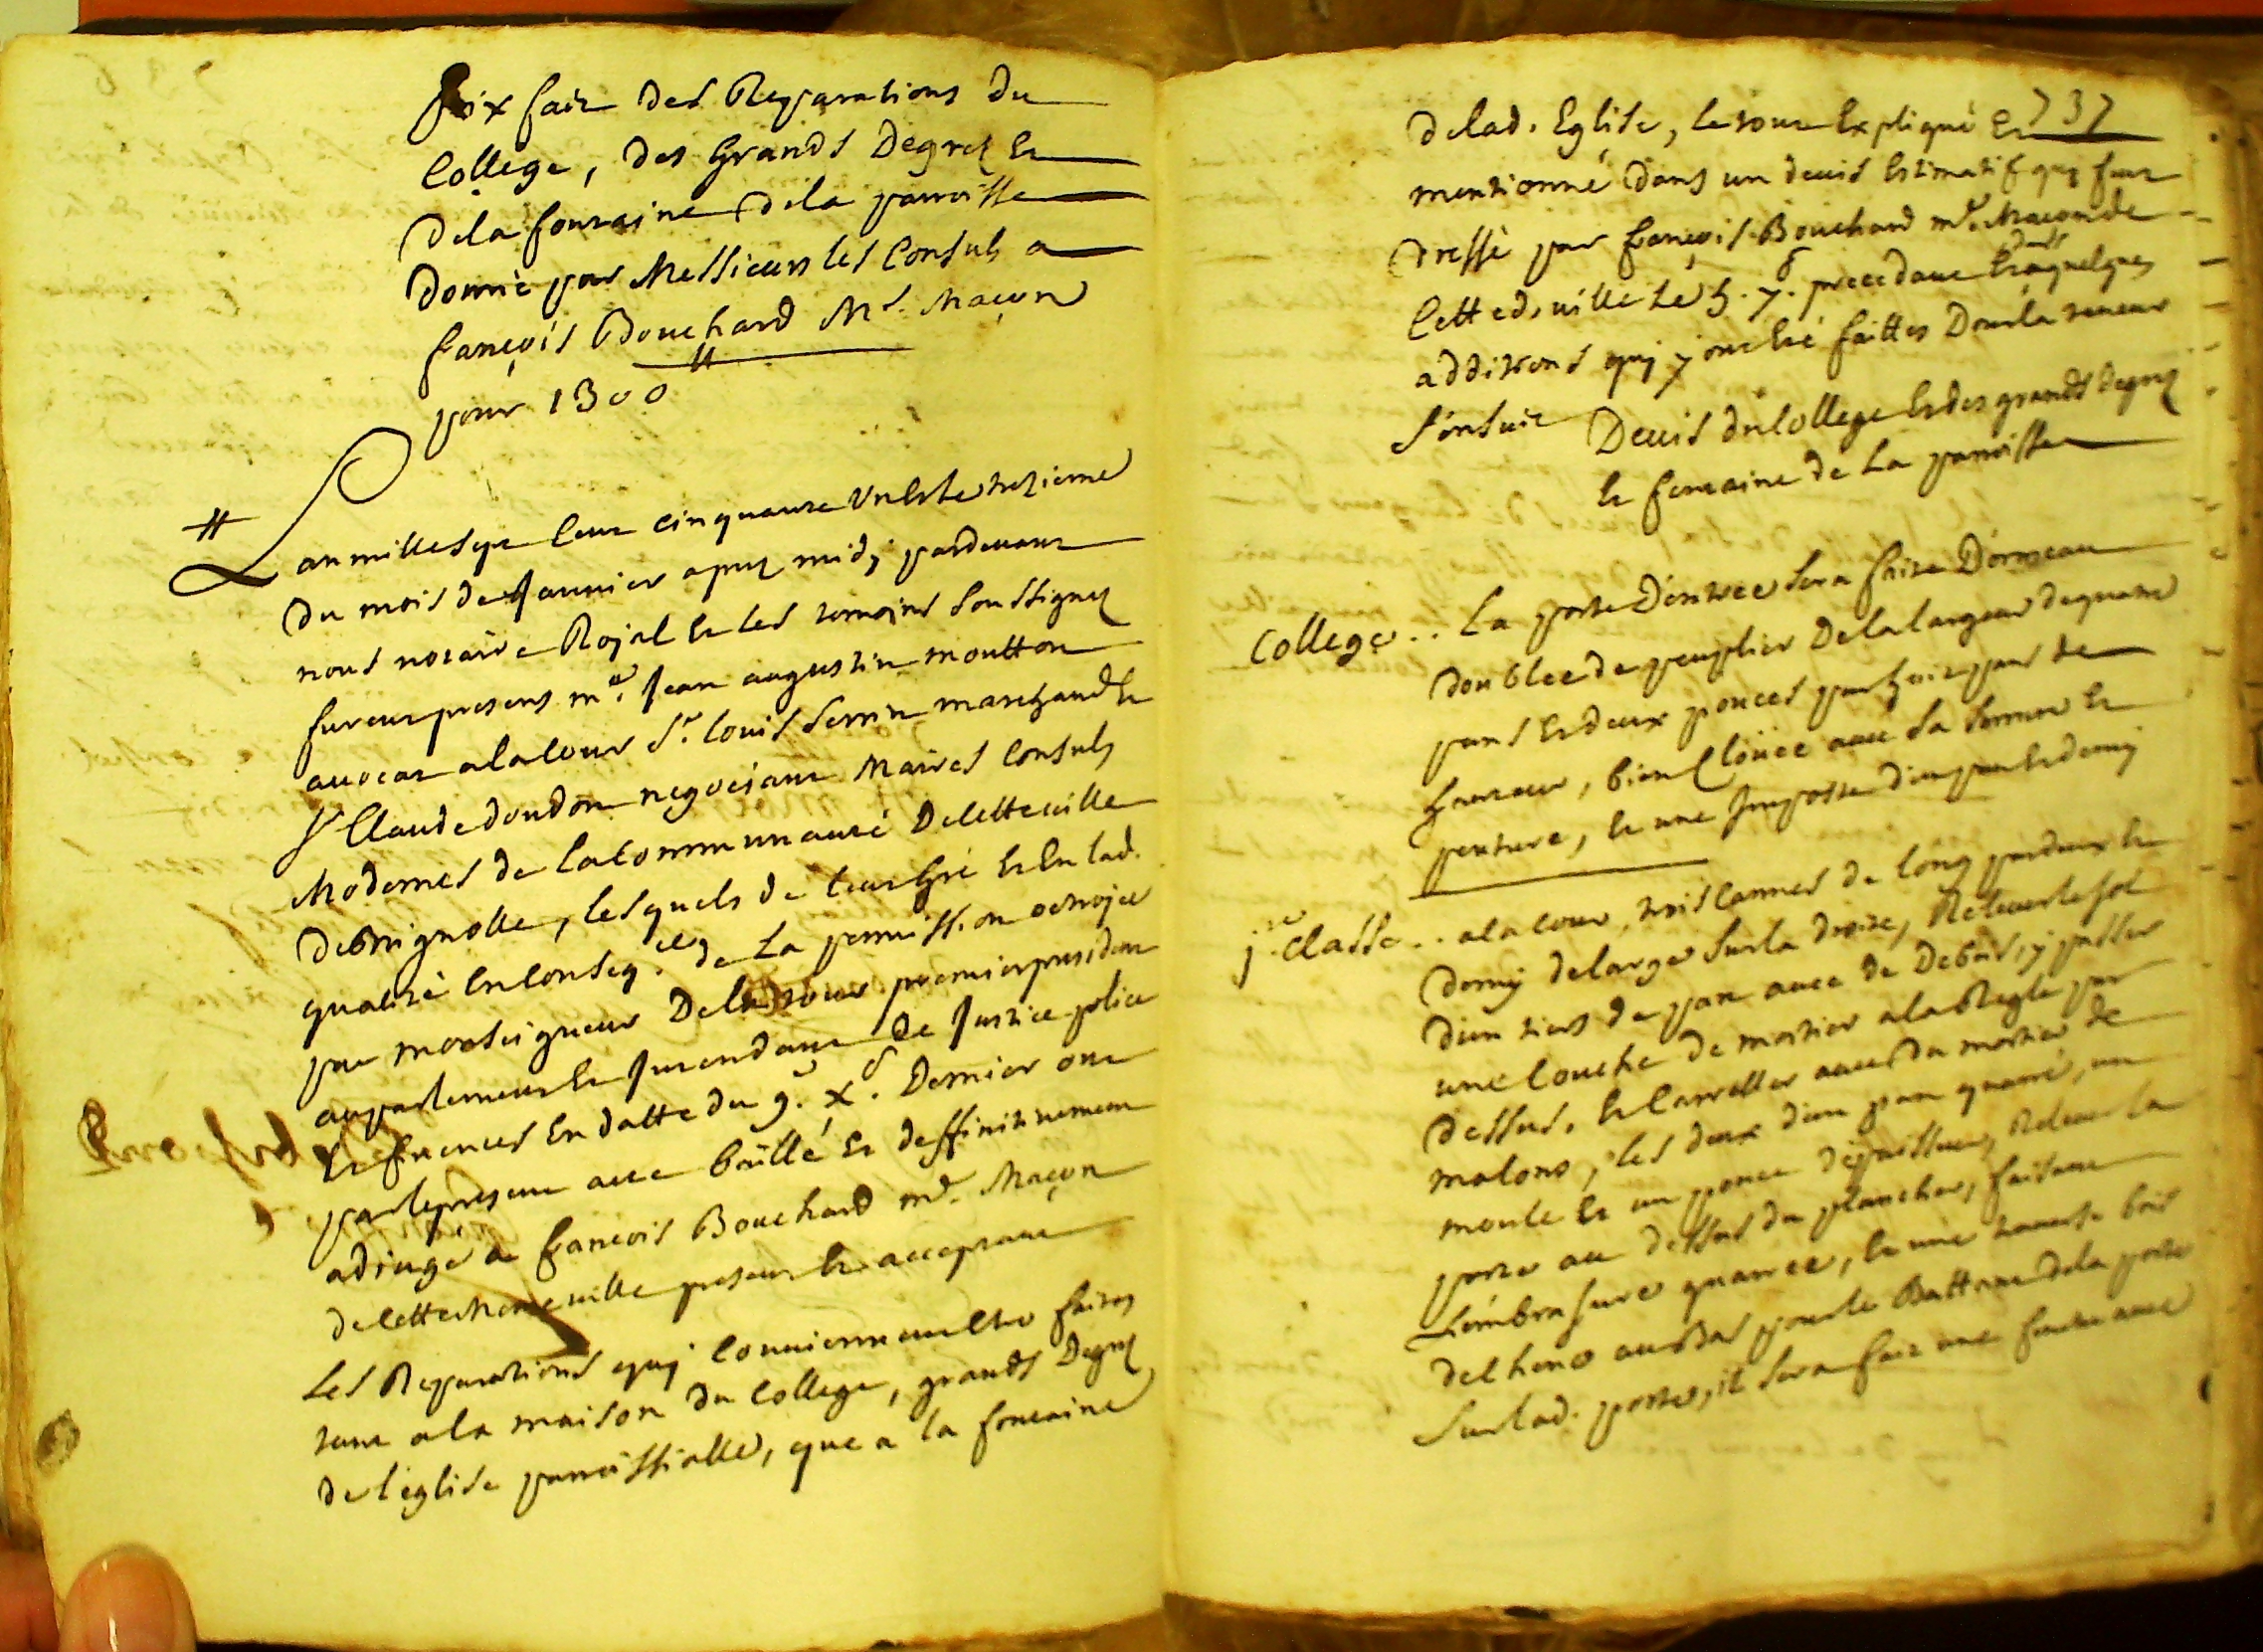 Prix fait des Reparations du
College, des Grands Degrez et
de la fontaine de la parroisse
donné par Messieurs les Consuls a
françois Bouchard Me. Maçon
pour 1300 ll
L'an mille sept cent cinquante un et le trezieme
du mois de Janvier aprez midy pardevant
nous notaire Royal et les temoins soussignez
furent presens me. Jean augustin moutton
avocat a la cour Sr. Louis Serrin marchand et
Sr Claude doudon negociant Maires Consuls
Modernes de la Communauté de cette ville
de Brignolle, lesquels de leur gré et en lad.
qualité en conseq.ce de la permission octroyée
par monseigneur de la tour premier president
au parlement et Intendant de Justice police
et finances en datte du 9e. xe. dernier ont
par le present acte baillé et deffinitivement
adjugé a françois Bouchard me. Maçon
de cette meme ville present et acceptant
les Reparations quy conviennent etre faites
tant a la maison du College, grands Degrez
de l'église parroissialle, que a la fontaine
737
de lad. Eglise, le tout expliqué et
mentionné dans un devis estimatif quy fut
dressé par françois Bouchard me. Maçon de
cette d. ville le 5. 7e. precedant et dans quelques
additions quy y ont été faittes dont la teneur
s'ensuit
Devis du College et des grands degrez
et fontaine de la parroisse
College .. La porte d'entrée sera faite d'ormeau
doublée de peuplier de la largeur de quatre
pans et deux pouces par huit pans de
hauteur, bien clouée avec sa serrure et
penture, et une Imposte d'un pan et demy
1re. Classe .. a la cour, trois cannes de long par deux et
demy de large sur la droite, Relever le sol
d'un tiers de pan avec de Debris, y passer
une couche de mortier a la Regle par
dessus, et carreller avec du mortier de
malons, les deux d'un pan quarré, un
moule et un pouce d'epaisseur, Relever la
porte au dessus du plancher, faisant
L'embrasure quarrée, et une traverse bois
de chene au bas pour le Battant de la porte
Sur lad. porte, il sera fait une fenetre avec